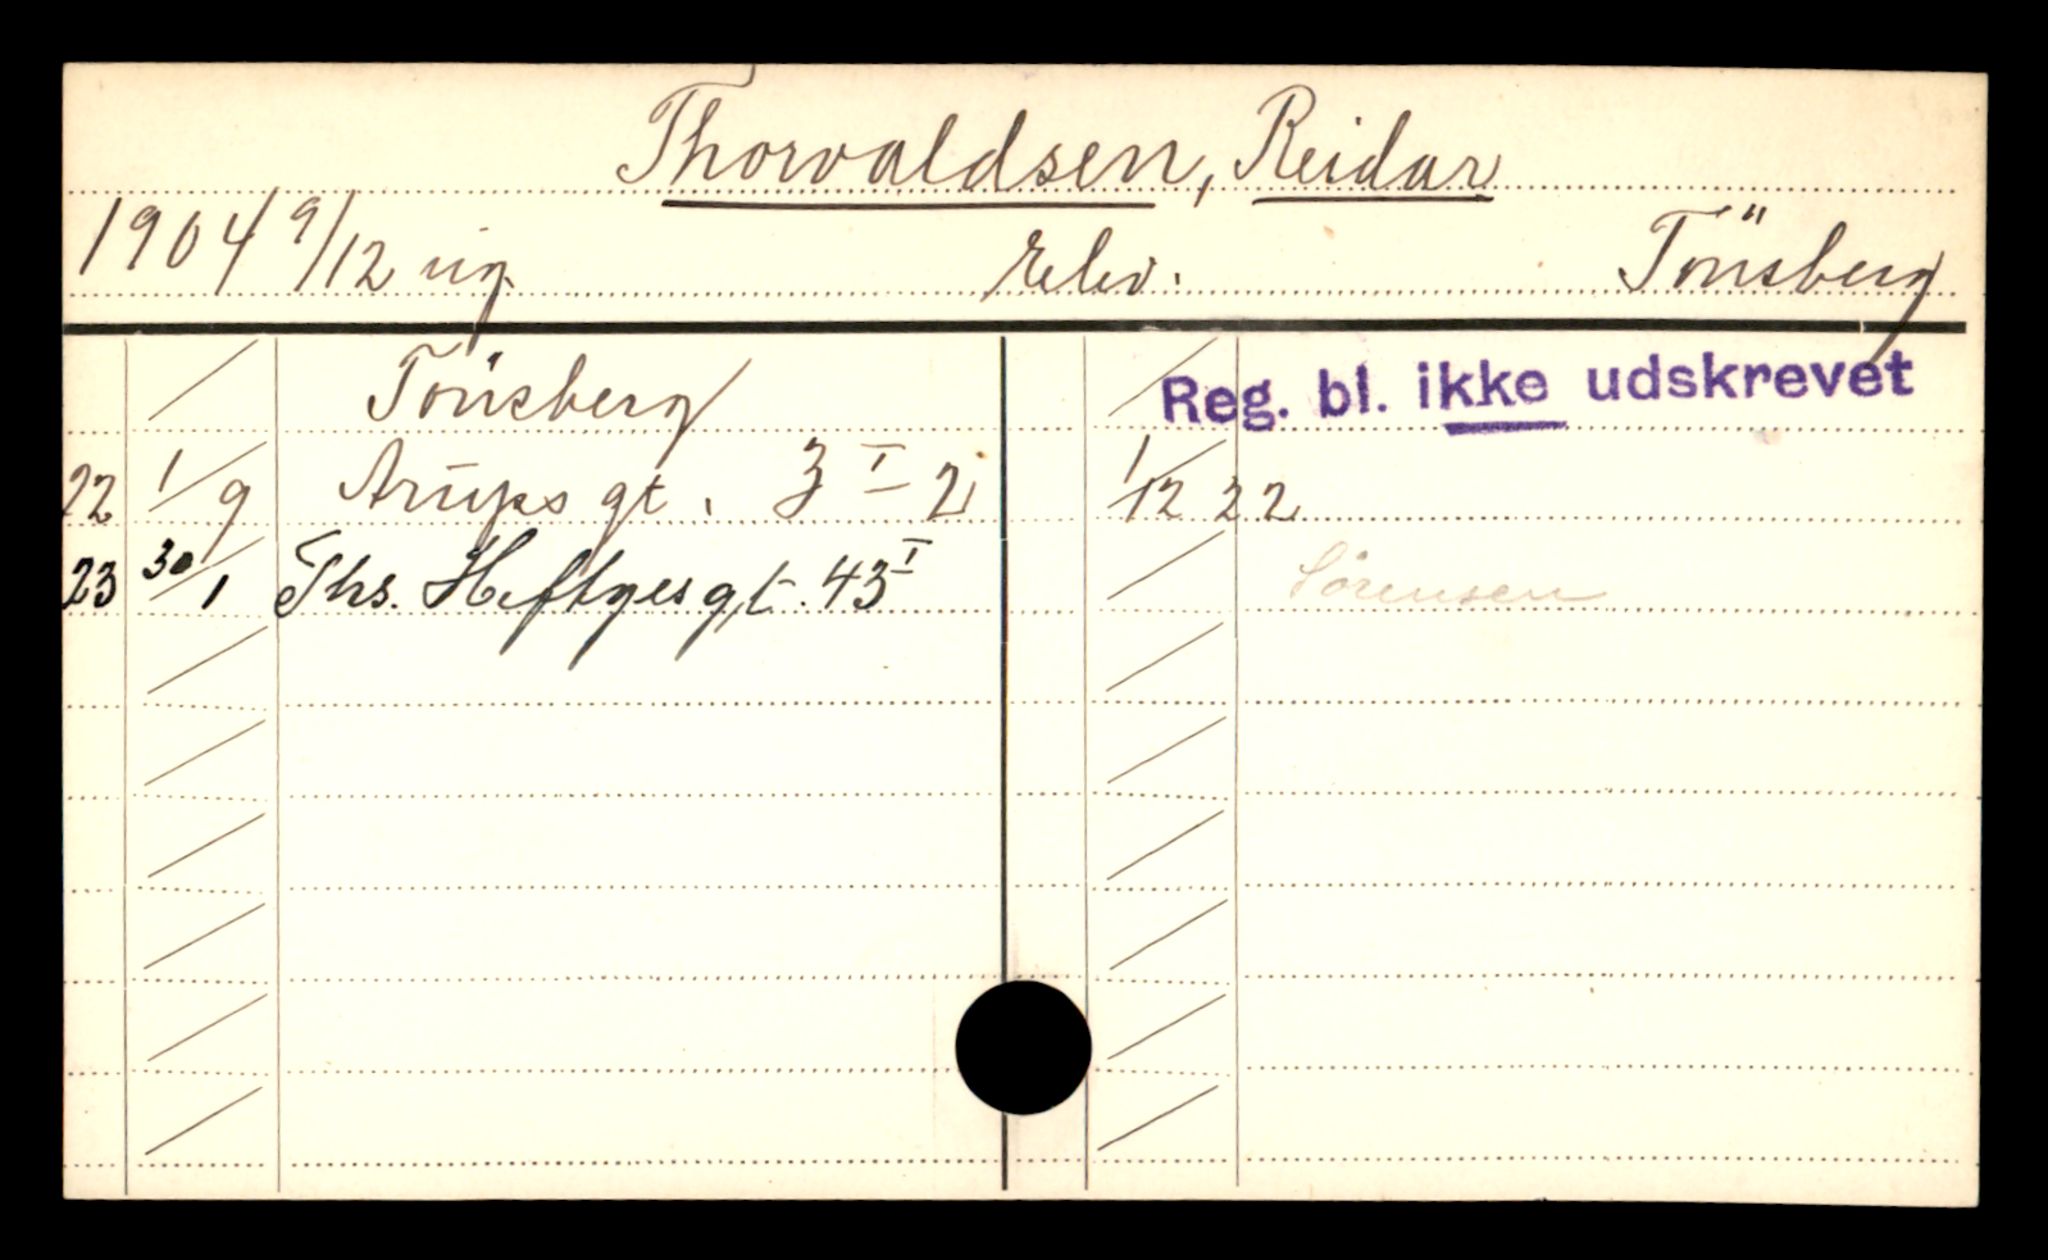 Thorvaldsen, Reidar
1904 9/12 ug. Elev. Tönsberg
Tönsberg
Reg. bl. ikke udskrevet
22 1/9 Arups gt. 3 I 2 1/12 22
23 30/1 Ths. Heftyes gt. 43 I Sörensen